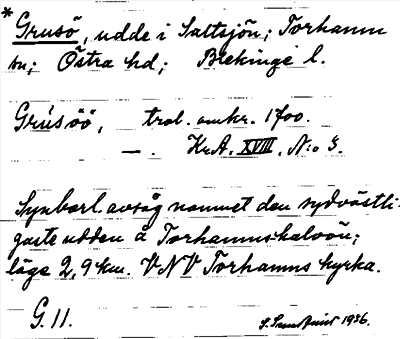 * Grusö, udde i Saltsjön; Torhamn
sn; Östra hd; Blekinge l.
Grusöö, trol. omkr. 1700.
— . Kr.A. XVIII. N:o 3.
Synbarl. avsåg namnet den sydvästli-
gaste udden å Torhamnshalvön;
läge 2,9 km. VNV Torhamns kyrka.
G. 11.
1936.